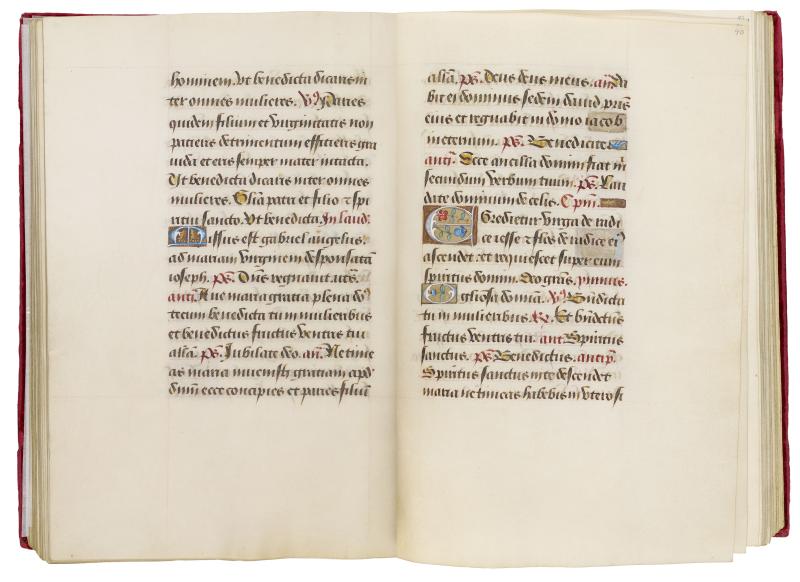 hominem. Ut benedicta dicaris in
ter omnes mulieres. V͛ Paries
quidem filium et virginitatis non
patieris detrimentum efficieris gra
uida et eris semper mater intacta.
Ut benedicta dicaris inter omnes
mulieres. Glia patri et filio ⁊ spi
ritu sancto. Ut benedicta. In laud̛
Missus est gabriel angelus.
ad mariam virginem desponsatā
ioseph. ps. Dn̄s regnauit. uts.
antī. Aue maria gratia plena do
tecum benedicta tu in mulieribus
et benedictus fructus ventris tui
allā. ps. Jubilate deo. an̄. Ne time
as maria inuenisti gratiam apd̛
dn̄m ecce concipies et paries filiū
allā. ps. Deus deus meus. an̄. Da
bit ei dominus sedem dauid pr̄is
eius et regnabit in domo iacob
in eternum. ps. Benedicite.
antī. Ecce ancilla domini fiat m̄
secundum verbum tuum. ps. Lau
date dominum de celis. Cpm̄.
Egredietur virga de radi
ce iesse ⁊ flos de radice ei⁹
ascendet. et requiescet super eum
spiritus domini. Deo grās. ymnus.
O gliosa domīa. V͛ Bn̄dicta
tu in mulieribus R͛. Et bn̄dctus
fructus ventris tui. ant. Spiritus
sanctus. ps. Benedictus. antip̄.
Spiritus sanctus in te descendet
maria ne timeas habebis in vtero fi
90